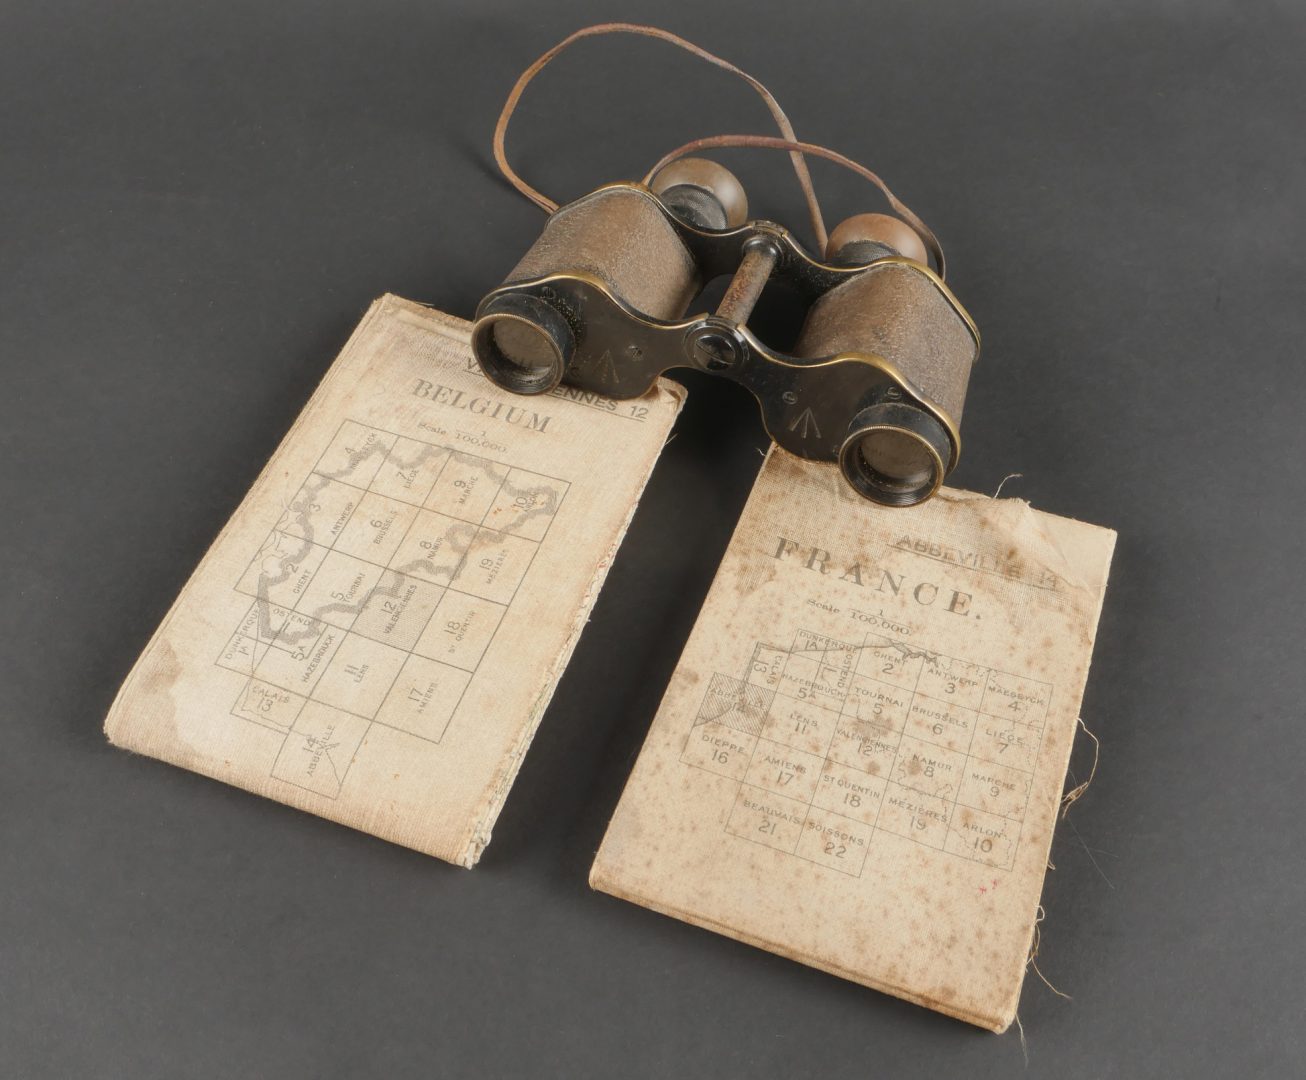 ENNES 12
BELGIUM
Scale 1/100,000
4 MAESEYCK
7 LIÉGE
9 MARCHE
10 ARLON
3 ANTWERP
6 BRUSSELS
8 NAMUR
19 MÉZIÈRES
2 GHENT
5 TOURNAI
12 VALENCIENNES
18 ST QUENTIN
DUNKERQUE 1A
OSTEND
5A HAZEBROUCK
11 LENS
17 AMIENS
CALAIS 13
14 ABBEVILLE
ABBEVILLE 14
FRANCE.
Scale 1/100,000.
DUNKERQUE 1A
OSTEND 1
GHENT 2
ANTWERP 3
MAESEYCK 4
CALAIS 13
HAZEBROUCK 5A
TOURNAI 5
BRUSSELS 6
LIÉGE 7
ABBEVILLE 14
LENS 11
VALENCIENNES 12
NAMUR 8
MARCHE 9
DIEPPE 16
AMIENS 17
ST QUENTIN 18
MÉZIÈRES 19
ARLON 10
BEAUVAIS 21
SOISSONS 22